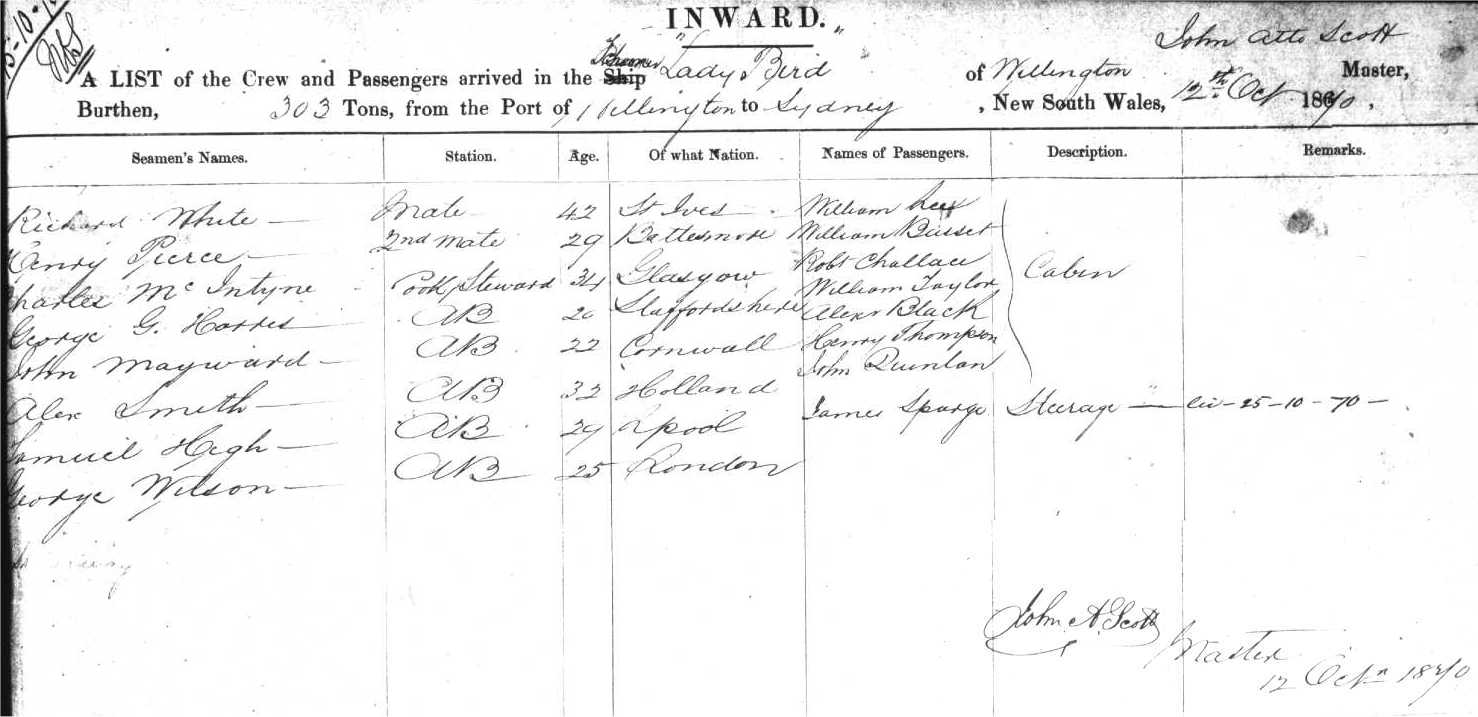 15-10-
INWARD.
John Otto Scott
A LIST of the Crew and Passengers arrived in the Ship Steamer "Lady Bird" of Wellington Master,
Burthen, 303 Tons, from the Port of Wellington to Sydney, New South Wales, 12th Oct 1870,
Seamen's Names. Station. Age. Of what Nation. Names of Passengers. Description. Remarks.
Richard White — Mate 42 St Ives William Lee
Henry Pierce — 2nd Mate 29 William Bisset
Charles McIntyne Cook/Steward 34 Glasgow Robt Challace Cabin
George G. Harris AB 20 Staffordshere William Taylor
John Mayward — AB 22 Cornwall Alexr Black
Alex Smith — AB 32 Holland Henry Thompson
Samuel High — AB 29 Lpool John Quinlan
George Wilson — AB 25 London James Sparge Steerage — 25-10-70-
John A. Scott
Master
12 Octr 1870